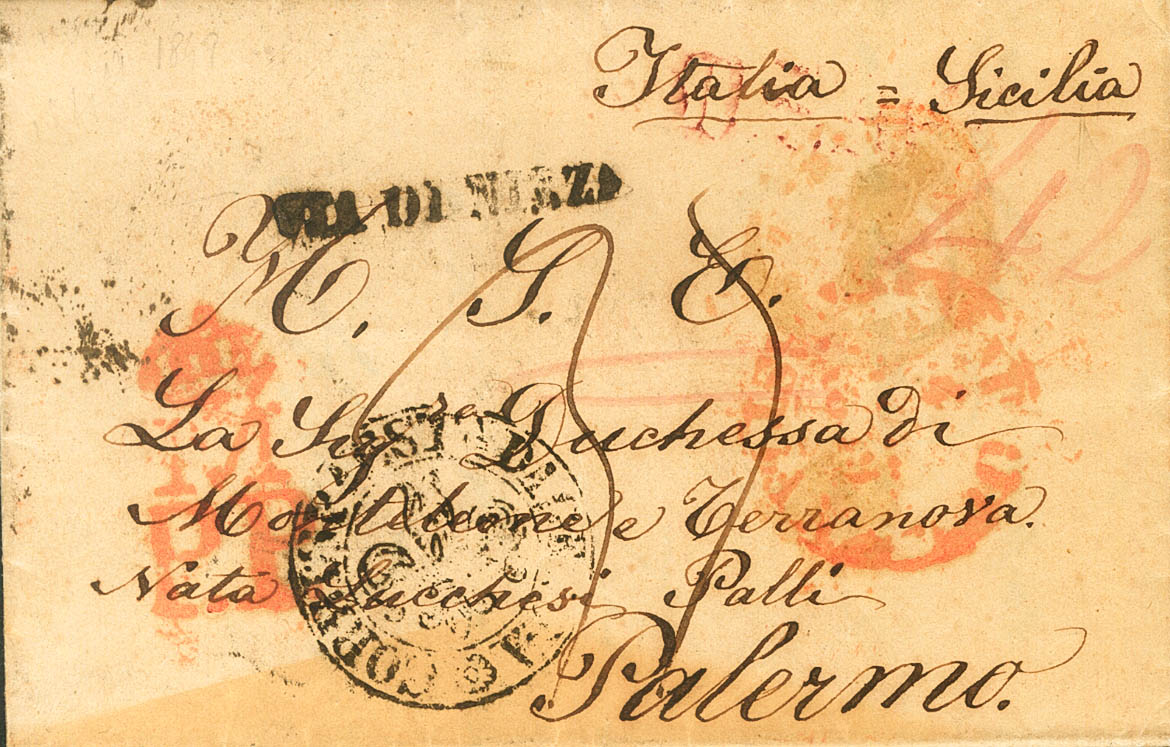 1849
Italia = Sicilia
VIA DI NIZZA
42
A. S. E.
La Sig.ra Duchessa di
Monteleone e Terranova.
Nata Lucchesi Palli
Palermo.